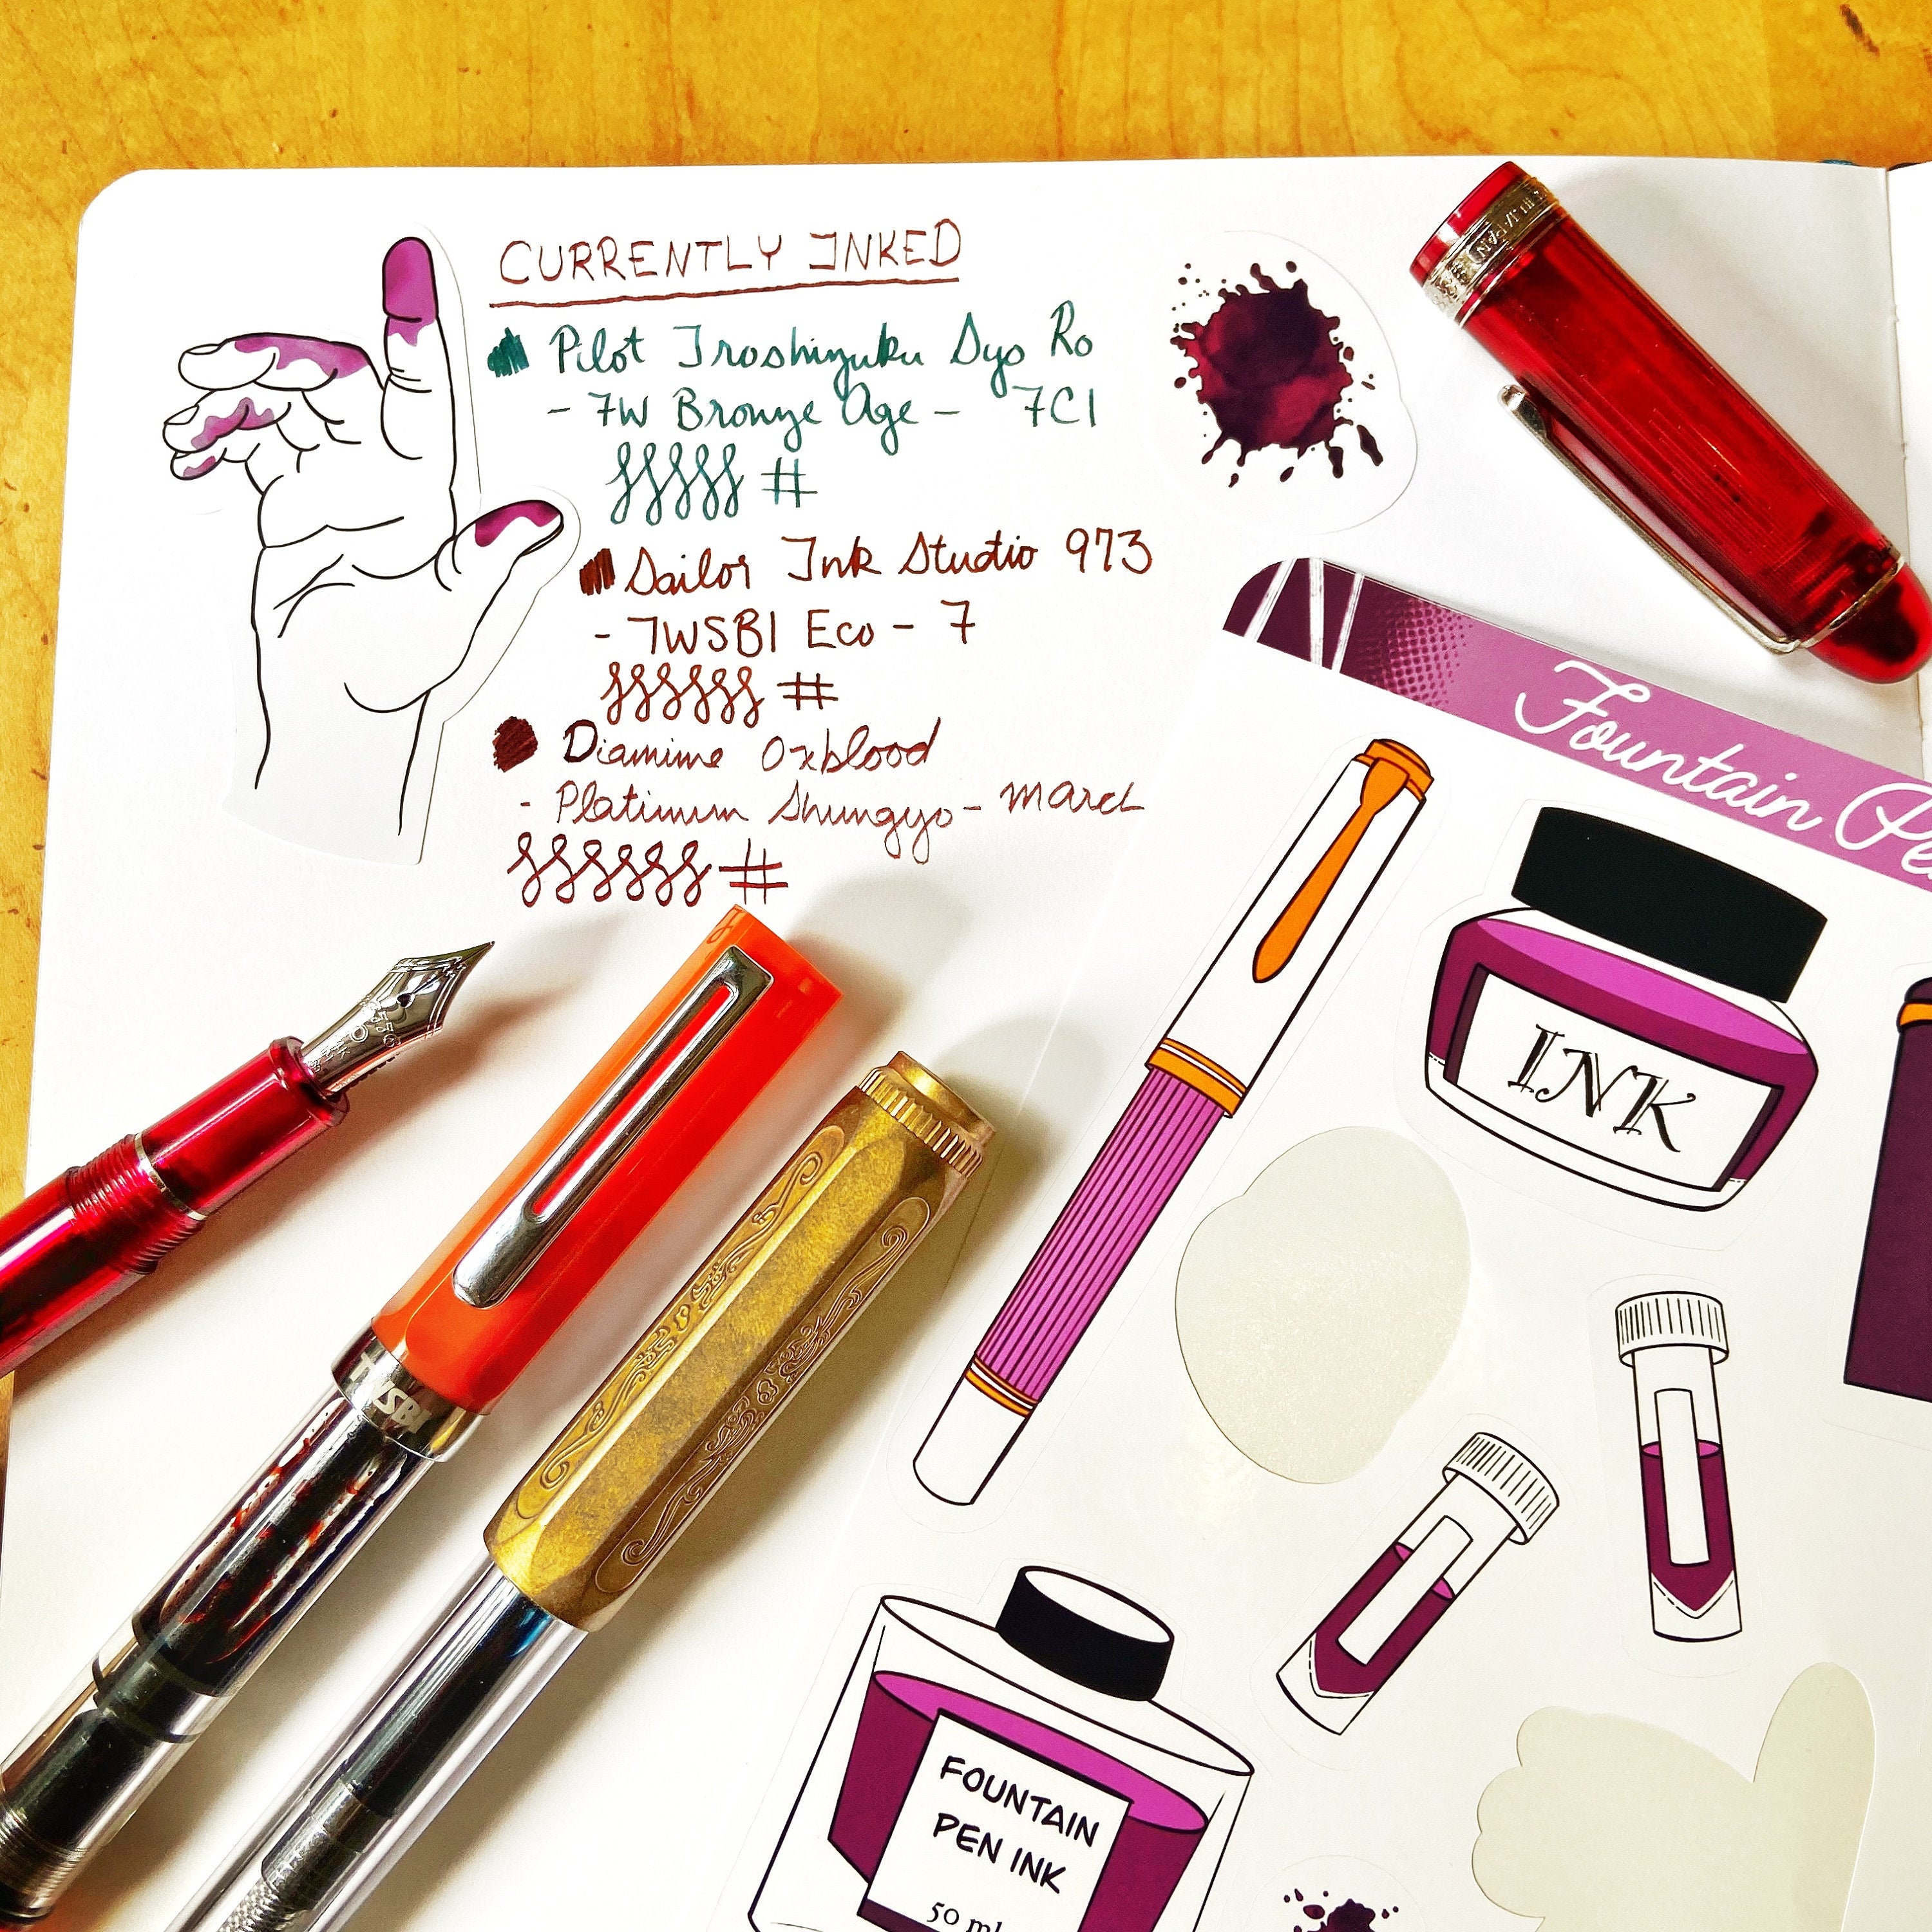 CURRENTLY INKED
Pilot Iroshizuku Syo Ro
- TW Bronze Age - TC1
#
Sailor Ink Studio 973
- TWSBI Eco - T
#
Diamine Oxblood
- Platinum Shungyo - March
#
Fountain Pe
INK
TWSBI
FOUNTAIN
PEN INK
50 ml